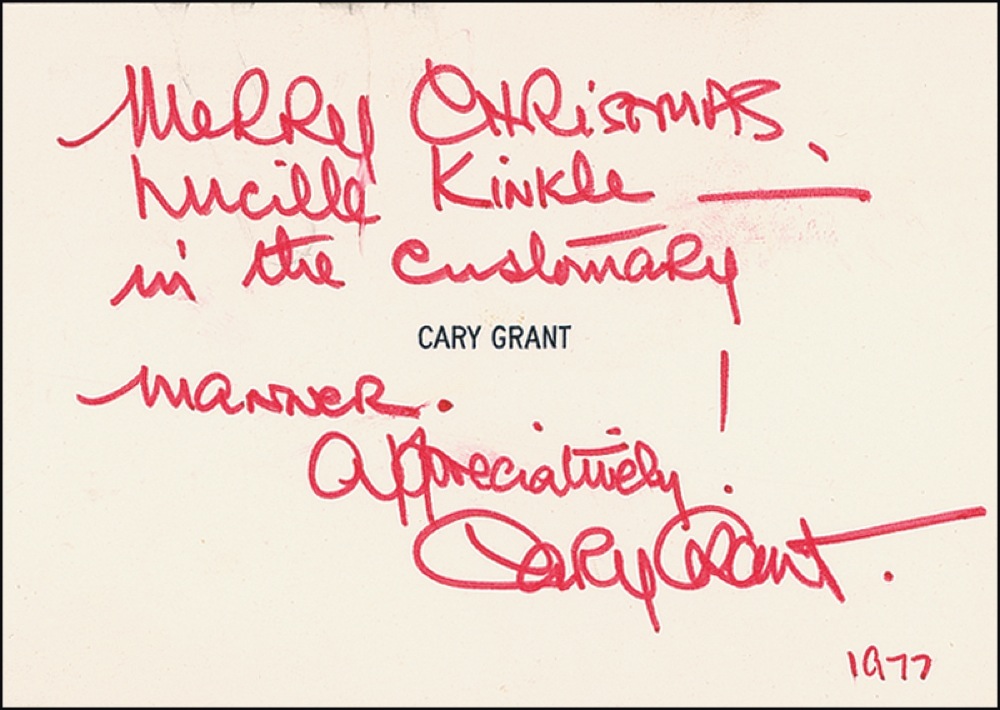 Merry Christmas,
Lucille Kinkle —
in the customary
CARY GRANT
manner.
Appreciatively!
Cary Grant.
1977